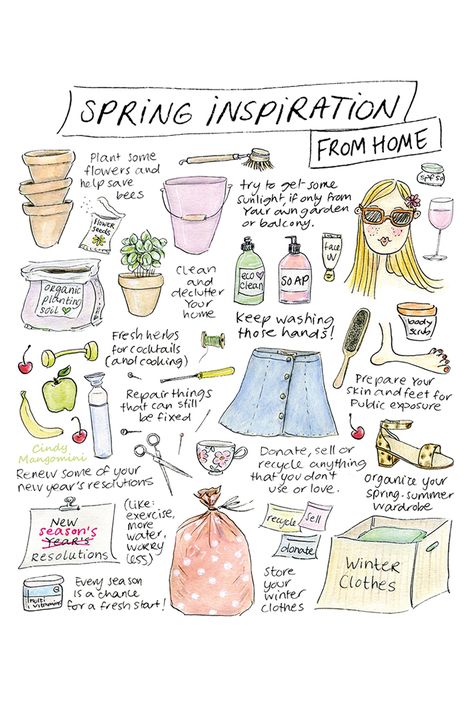 SPRING INSPIRATION
FROM HOME
Plant some
flowers and
help save
bees
FLOWER
SEEDS
try to get some
sunlight, if only from
your own garden
or balcony.
SPF 50
organic
planting
soil
Clean
and
declutter
Your
home
eco
clean
SOAP
face
UV
Keep washing
those hands!
body
scrub
Fresh herbs
for cocktails
(and cooking)
Repair things
that can still
be fixed
Prepare your
skin and feet for
Public exposure
Cindy
Mangomini
Renew some of your
new year's resolutions
(like:
exercise,
more
water,
worry
less)
New
season's
Year's
Resolutions
Donate, sell or
recycle anything
that you don't
use or love.
organize your
spring-summer
wardrobe
recycle
sell
donate
Store
your
winter
clothes
Winter
Clothes
Multi
vitamins
Every season
is a chance
for a fresh start!